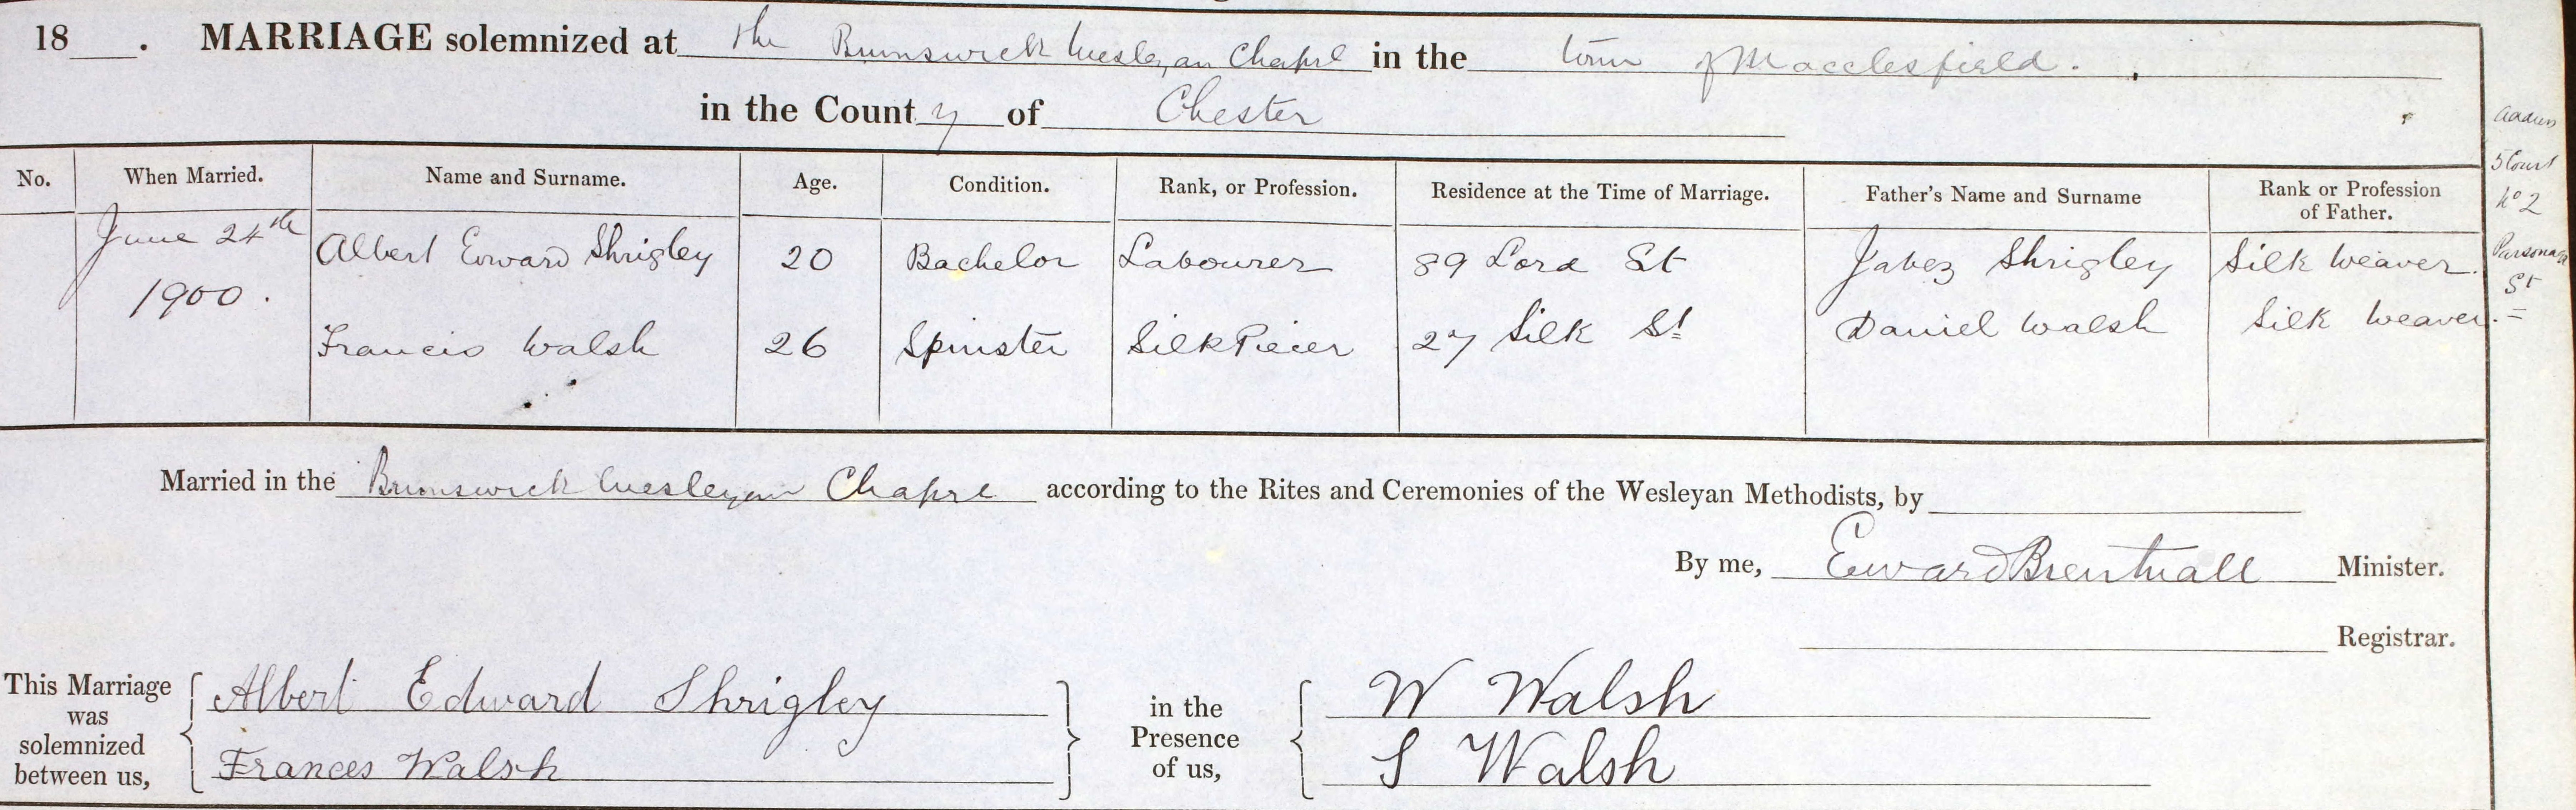 18 . MARRIAGE solemnized at the Brunswick Wesleyan Chapel in the town of Macclesfield.
in the County of Chester
No. When Married. Name and Surname. Age. Condition. Rank, or Profession. Residence at the Time of Marriage. Father's Name and Surname Rank or Profession of Father.
June 24th 1900. Albert Edward Shrigley 20 Bachelor Labourer 89 Lord St Jabez Shrigley Silk Weaver.
Francis Walsh 26 Spinster Silk Piecer 27 Silk St Daniel Walsh Silk Weaver.
Address
5 Court
No 2
Parsonage
St
Married in the Brunswick Wesleyan Chapel according to the Rites and Ceremonies of the Wesleyan Methodists, by
By me, Edward Brentnall Minister.
Registrar.
This Marriage was solemnized between us, Albert Edward Shrigley
Frances Walsh
in the Presence of us, W Walsh
S Walsh